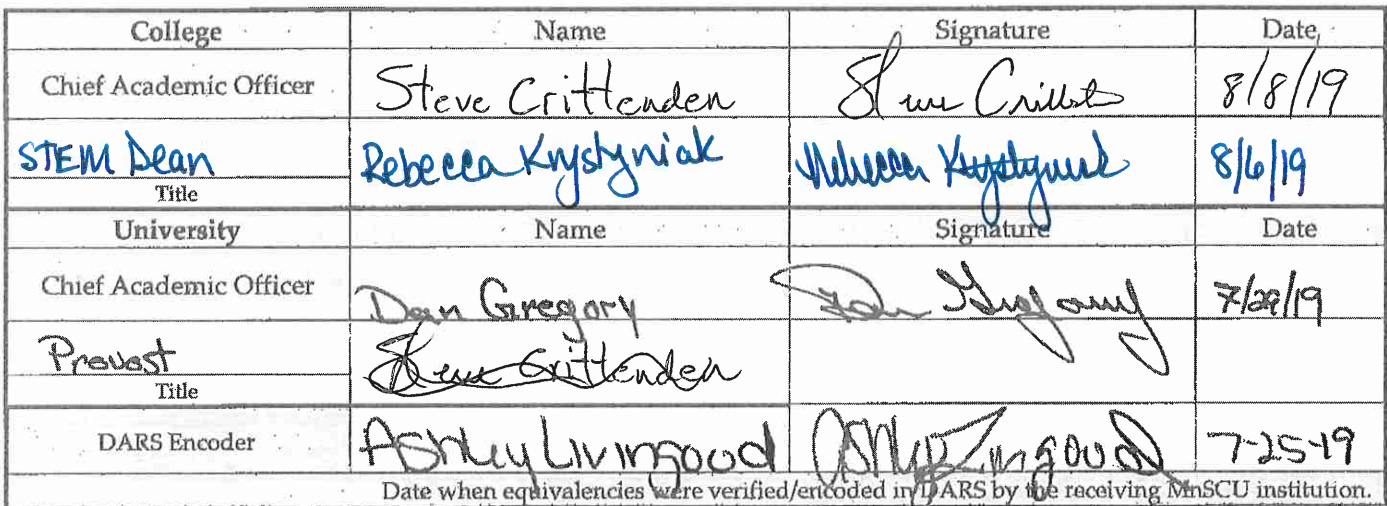 College Name Signature Date
Chief Academic Officer Steve Crittenden 8/8/19
STEM Dean Rebecca Krystyniak Rebecca Krystyniak 8/6/19
Title
University Name Signature Date
Chief Academic Officer Dan Gregory Dan Gregory 7/29/19
Provost Steve Crittenden
Title
DARS Encoder Ashley Livingood Ashley Livingood 7-25-19
Date when equivalencies were verified/encoded in DARS by the receiving MnSCU institution.